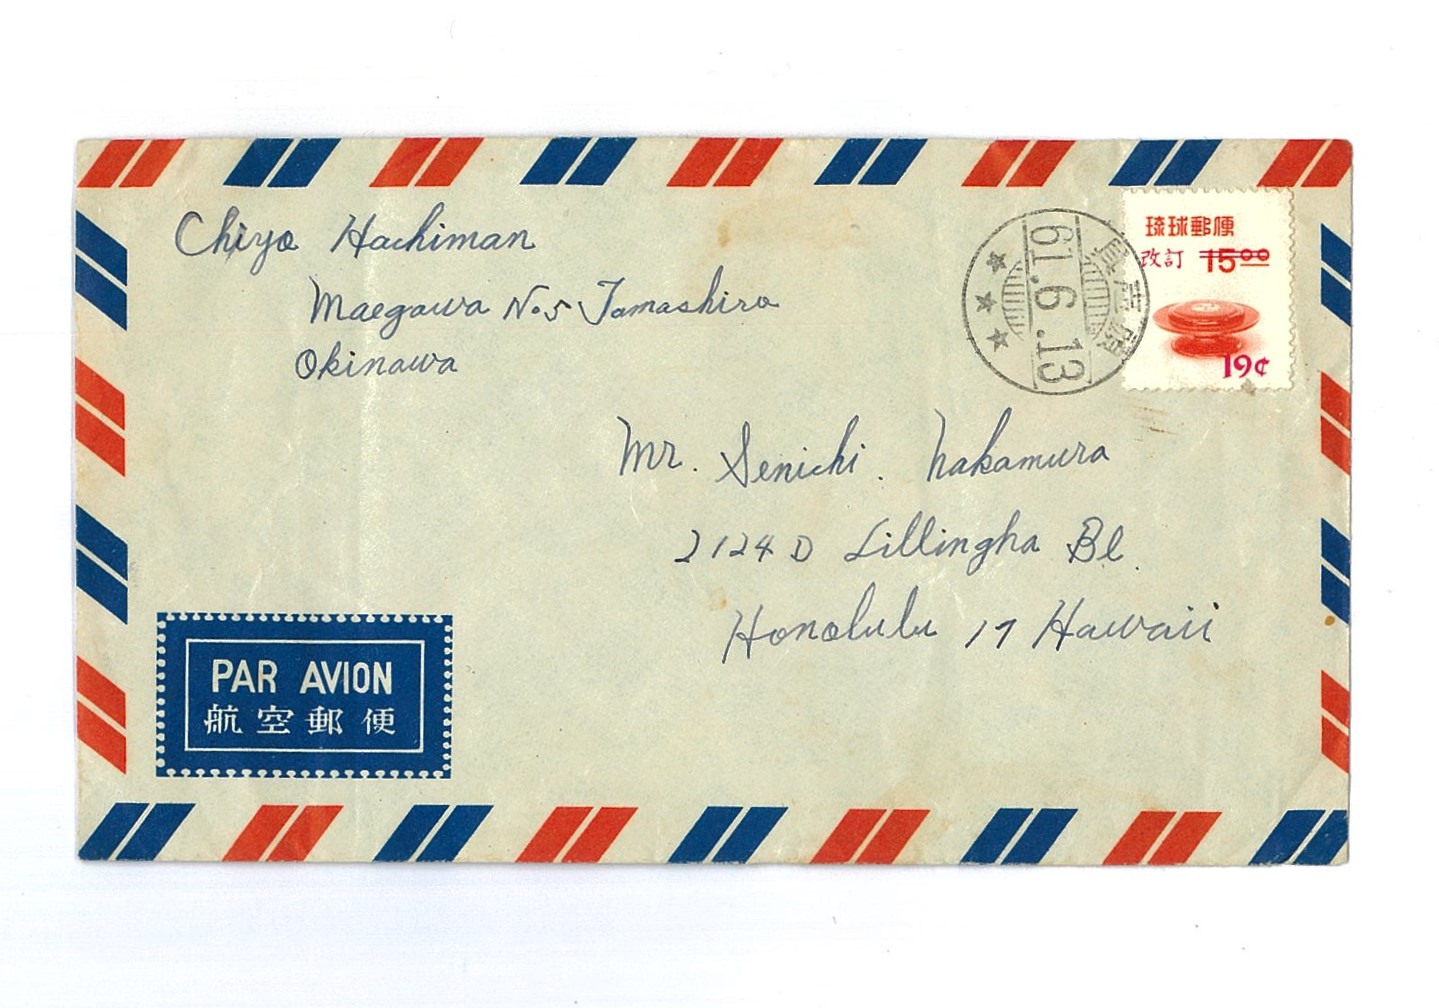 Chiyo Hachiman
Maegawa No.5 Tamashiro
Okinawa
61.6.13
琉球郵便
改訂 15⁰⁰
19¢
Mr. Senichi. Nakamura
2124 D Lillingha Bl.
Honolulu 17 Hawaii
PAR AVION
航空郵便